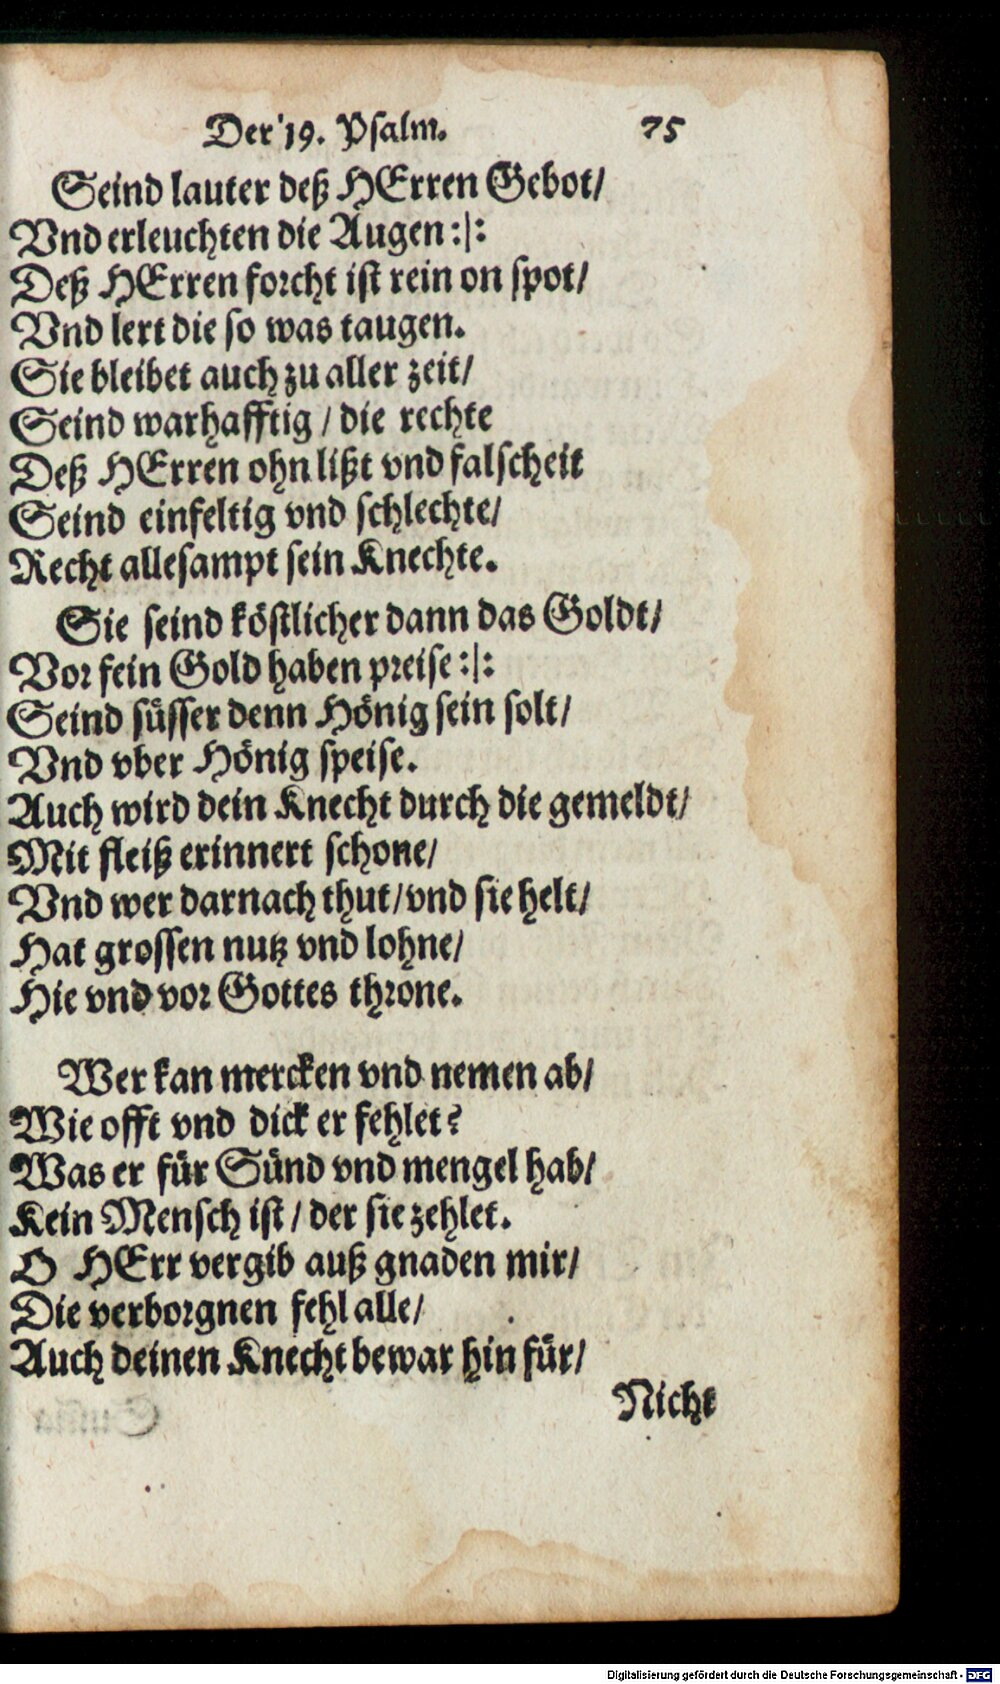 Der 19. Psalm. 75
Seind lauter deß HErren Gebot/
Vnd erleuchten die Augen :|:
Deß HErren forcht ist rein on spot/
Vnd lert die so was taugen.
Sie bleibet auch zu aller zeit/
Seind warhafftig / die rechte
Deß HErren ohn lißt vnd falscheit
Seind einfeltig vnd schlechte/
Recht allesampt sein Knechte.
Sie seind köstlicher dann das Goldt/
Vor fein Gold haben preise :|:
Seind süsser denn Hönig sein solt/
Vnd vber Hönig speise.
Auch wird dein Knecht durch die gemeldt/
Mit fleiß erinnert schone/
Vnd wer darnach thut/vnd sie helt/
Hat grossen nutz vnd lohne/
Hie vnd vor Gottes throne.
Wer kan mercken vnd nemen ab/
Wie offt vnd dick er fehlet?
Was er für Sünd vnd mengel hab/
Kein Mensch ist / der sie zehlet.
O HErr vergib auß gnaden mir/
Die verborgnen fehl alle/
Auch deinen Knecht bewar hin für/
Nicht
Digitalisierung gefördert durch die Deutsche Forschungsgemeinschaft - DFG